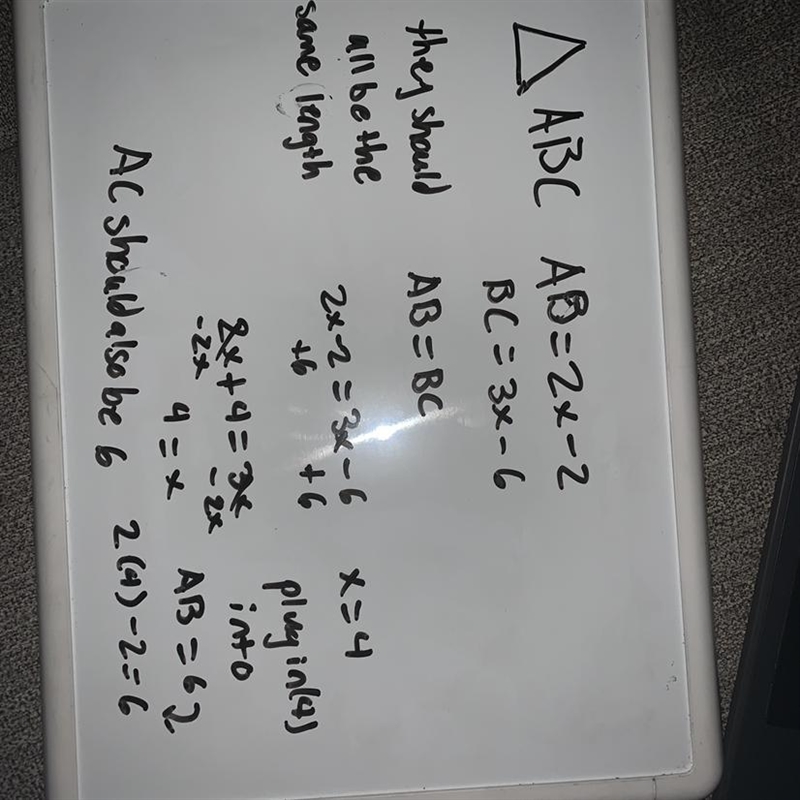 △ ABC AB = 2x - 2
BC = 3x - 6
they should
all be the
same length
AB = BC
2x - 2 = 3x - 6
+6 +6
2x + 4 = 3x
-2x -2x
4 = x
x = 4
plug in (4)
into
AB = 6
2(4) - 2 = 6
AC should also be 6